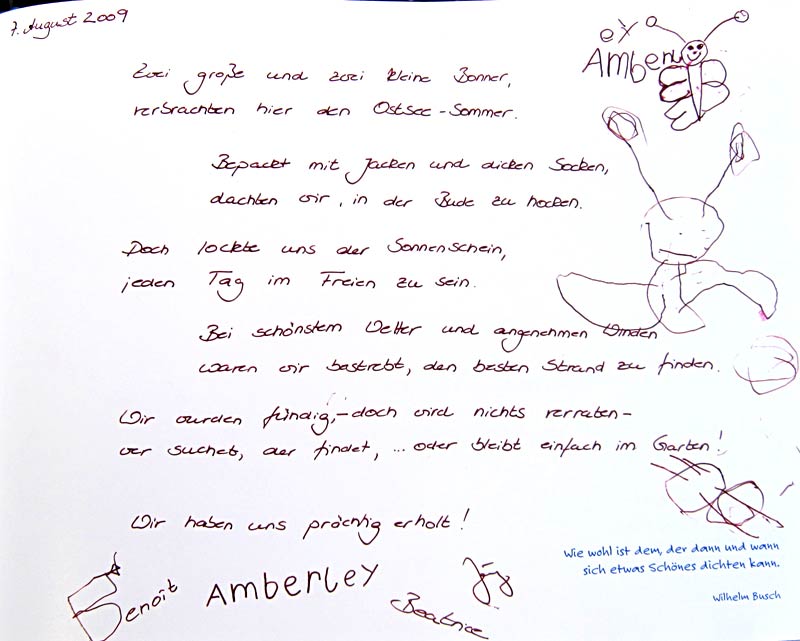 7. August 2009
Amberley
Zwei große und zwei kleine Bonner,
verbrachten hier den Ostsee-Sommer.
Bepackt mit Jacken und dicken Socken,
dachten wir, in der Bude zu hocken.
Doch lockte uns der Sonnenschein,
jeden Tag im Freien zu sein.
Bei schönstem Wetter und angenehmen Winden
waren wir bestrebt, den besten Strand zu finden.
Wir wurden fündig, - doch wird nichts verraten -
wer suchet, der findet, ... oder bleibt einfach im Garten!
Wir haben uns prächtig erholt!
Benoît AMBERLEY Beatrice Jörg
Wie wohl ist dem, der dann und wann
sich etwas Schönes dichten kann.
Wilhelm Busch